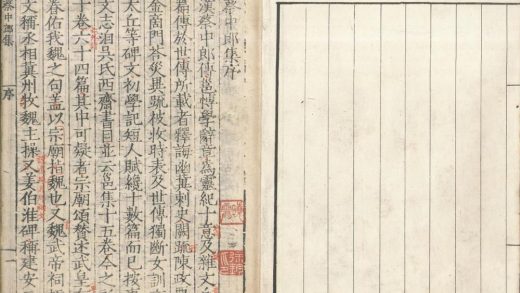 漢蔡中郎集序
漢蔡中郎傳邕博學辭章爲靈紀十意及雜文
篇傳於世傳所載者釋誨幽冀刺史闕疏陳政
金商門荅災異疏被收時表及世傳獨斷女訓
太丘等碑文初學記短人賦纔十數篇而已按
文志洎吳氏西齋書目並云邕集十五卷今之
十卷六十四篇其中可疑者宗廟頌贊述武皇
眷佑我魏之句蓋以宗廟指魏也又魏武帝祠
文稱丞相冀州牧魏主操又姜伯淮碑稱建安
蔡中郎集 序